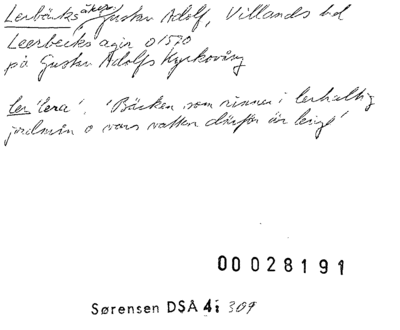 Lerbäcks åker, Gustav Adolf, Villands hd
Leerbecks agir o 1570
på Gustav Adolfs Kyrkovång
ler 'lera'. 'Bäcken som rinner i lerhaltig
jordmån o vars vatten därför är lerigt'
00028191
Sørensen DSA 4: 309